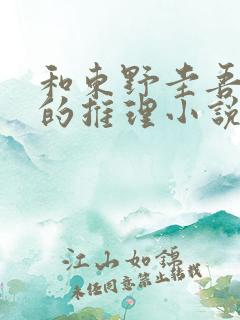 和东野圭吾
的推理小说
江山如锦
未经同意禁止转载